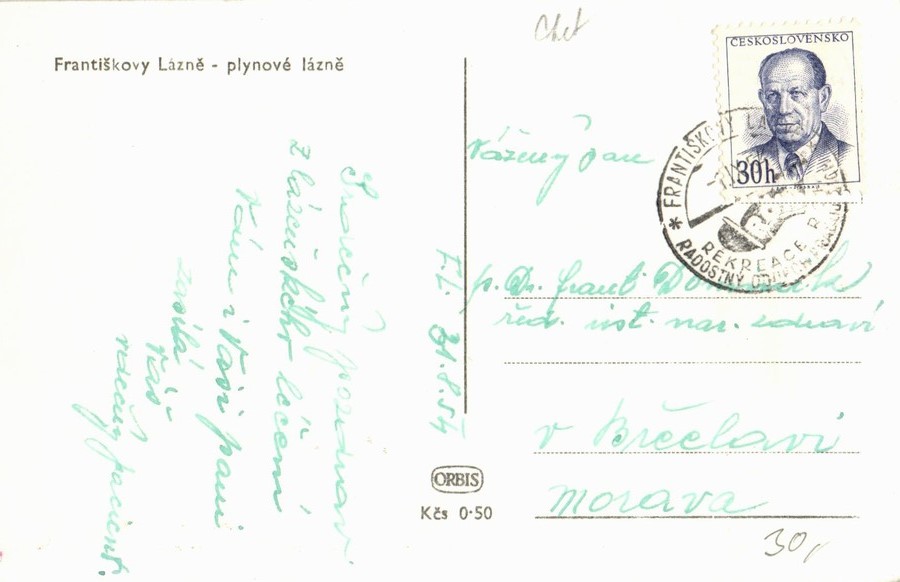 Cheb
Františkovy Lázně - plynové lázně
ČESKOSLOVENSKO
30h
* FRANTIŠKOVY LÁ
REKREACE
RADOSTNÝ
Srdečný pozdrav
z lázeňského léčení
Vám i Vaší paní
zasílá
Váš
vděčný pacient.
F.L. 31.8.54
Vážený pan
p. Dr. Frant.
řed. úst. nar. zdraví
v Břeclavi
Morava
ORBIS
Kčs 0·50
30,